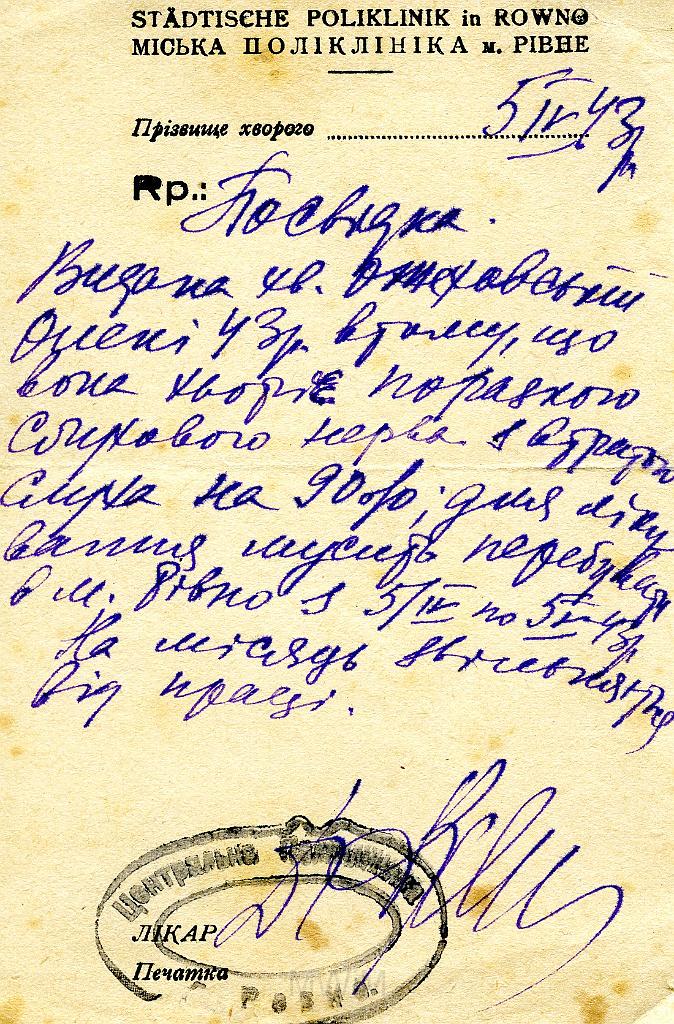 STÄDTISCHE POLIKLINIK in ROWNO
МІСЬКА ПОЛІКЛІНІКА м. РІВНЕ
Прізвище хворого 5/IV 43 р
Rp.: Посвідка.
Видана хв.
Олені 43 р. в тому, що
вона хворіє поразкою
слухового нерва з втратою
слуха на 90 о/о; для ліку
вання мусить перебувати
в м. Рівно з 5/IV по 5/V 43 р
На місяць звільняється
від праці.
Центральна
ЛІКАР
Печатка
Ровно.